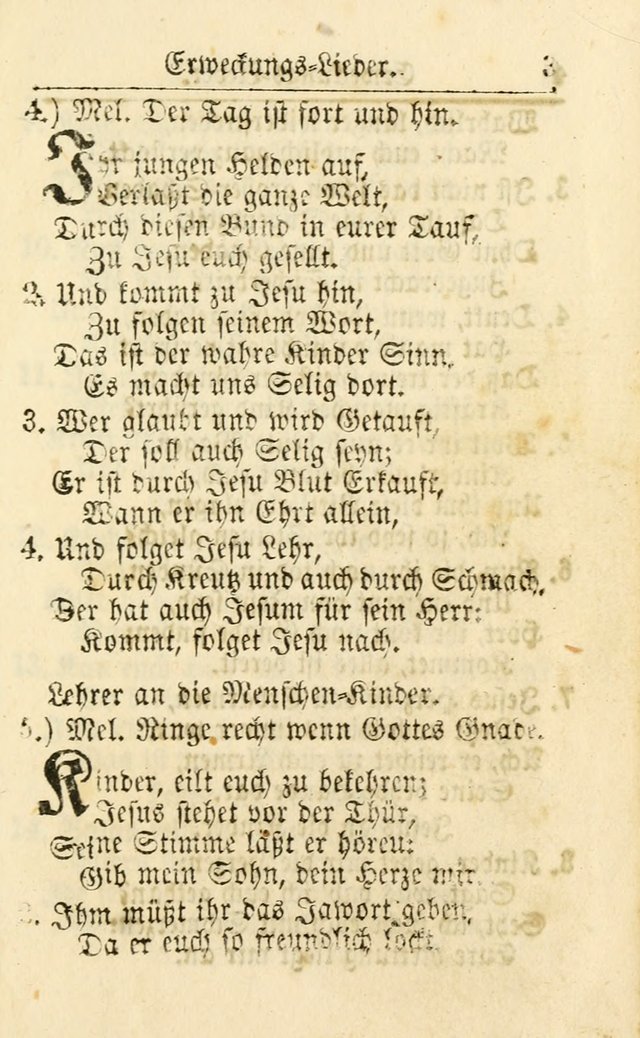 Erweckungs-Lieder. 3
4.) Mel. Der Tag ist fort und hin.
Ihr jungen Helden auf,
Verlaßt die ganze Welt,
Durch diesen Bund in eurer Tauf,
Zu Jesu euch gesellt.
2. Und kommt zu Jesu hin,
Zu folgen seinem Wort,
Das ist der wahre Kinder Sinn,
Es macht uns Selig dort.
3. Wer glaubt und wird Getauft,
Der soll auch Selig seyn;
Er ist durch Jesu Blut Erkauft,
Wann er ihn Ehrt allein,
4. Und folget Jesu Lehr,
Durch Kreutz und auch durch Schmach,
Der hat auch Jesum für sein Herr:
Kommt, folget Jesu nach.
Lehrer an die Menschen-Kinder.
5.) Mel. Ringe recht wenn Gottes Gnade.
Kinder, eilt euch zu bekehren;
Jesus stehet vor der Thür,
Seine Stimme läßt er hören:
Gib mein Sohn, dein Herze mir.
2. Ihm müßt ihr das Jawort geben,
Da er euch so freundlich lockt.